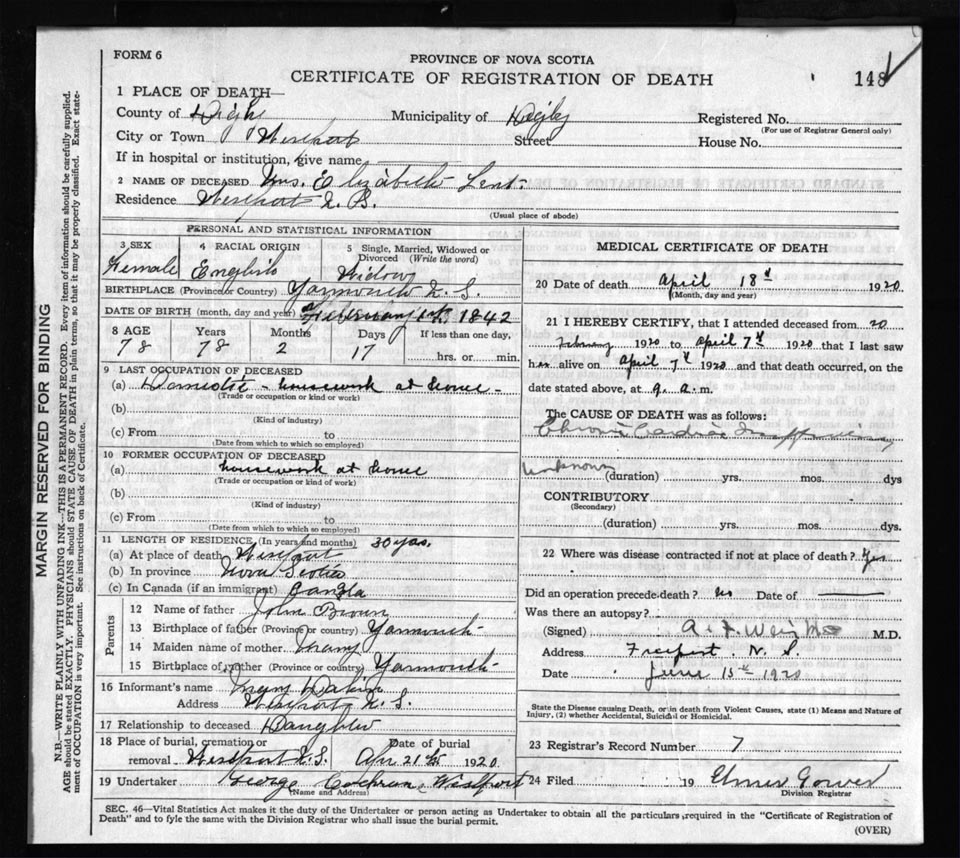 FORM 6
PROVINCE OF NOVA SCOTIA
CERTIFICATE OF REGISTRATION OF DEATH
148
1 PLACE OF DEATH—
County of Digby Municipality of Digby Registered No.
(For use of Registrar General only)
City or Town Westport Street House No.
If in hospital or institution, give name
2 NAME OF DECEASED Mrs. Elizabeth Lent.
Residence Westport
(Usual place of abode)
PERSONAL AND STATISTICAL INFORMATION
3 SEX 4 RACIAL ORIGIN 5 Single, Married, Widowed or Divorced (Write the word)
Female English Widow
BIRTHPLACE (Province or Country) Yarmouth N.S.
DATE OF BIRTH (month, day and year) February 1842
8 AGE Years Months Days If less than one day,
78 78 2 17 hrs. or min.
9 LAST OCCUPATION OF DECEASED
(a) Domestic - housework at home -
(Trade or occupation or kind or work)
(b)
(Kind of industry)
(c) From to
(Date from which to which so employed)
10 FORMER OCCUPATION OF DECEASED
(a) housework at home
(Trade or occupation or kind of work)
(b)
(Kind of industry)
(c) From to
(Date from which to which so employed)
11 LENGTH OF RESIDENCE (In years and months) 30 yrs.
(a) At place of death Westport
(b) In province Nova Scotia
(c) In Canada (if an immigrant)
Parents
12 Name of father John Brown
13 Birthplace of father (Province or country) Yarmouth
14 Maiden name of mother Mary
15 Birthplace of mother (Province or country) Yarmouth
16 Informant's name Mary Dakin
Address Westport N.S.
17 Relationship to deceased Daughter
18 Place of burial, cremation or removal Westport N.S. Date of burial Apr 21st 1920
19 Undertaker George Cochran, Westport
(Name and Address)
MEDICAL CERTIFICATE OF DEATH
20 Date of death April 18th 1920
(Month, day and year)
21 I HEREBY CERTIFY, that I attended deceased from 20
February 1920 to April 7th 1920 that I last saw
her alive on April 7th 1920 and that death occurred, on the
date stated above, at 9. a.m.
The CAUSE OF DEATH was as follows:
Chronic Cardiac
unknown (duration) yrs. mos. dys
CONTRIBUTORY
(Secondary)
(duration) yrs. mos. dys.
22 Where was disease contracted if not at place of death? Yes
Did an operation precede death? no Date of
Was there an autopsy?
(Signed) M.D.
Address Freeport. N.S.
Date June 15th 1920
State the Disease causing Death, or in death from Violent Causes, state (1) Means and Nature of
Injury, (2) whether Accidental, Suicidal or Homicidal.
23 Registrar's Record Number 7
24 Filed 19 Elmer Gower
Division Registrar
SEC. 46—Vital Statistics Act makes it the duty of the Undertaker or person acting as Undertaker to obtain all the particulars required in the "Certificate of Registration of
Death" and to fyle the same with the Division Registrar who shall issue the burial permit.
(OVER)
MARGIN RESERVED FOR BINDING
N.B.—WRITE PLAINLY WITH UNFADING INK—THIS IS A PERMANENT RECORD. Every item of information should be carefully supplied.
AGE should be stated EXACTLY. PHYSICIANS should STATE CAUSE OF DEATH in plain terms, so that it may be properly classified. Exact state-
ment of OCCUPATION is very important. See instructions on back of Certificate.